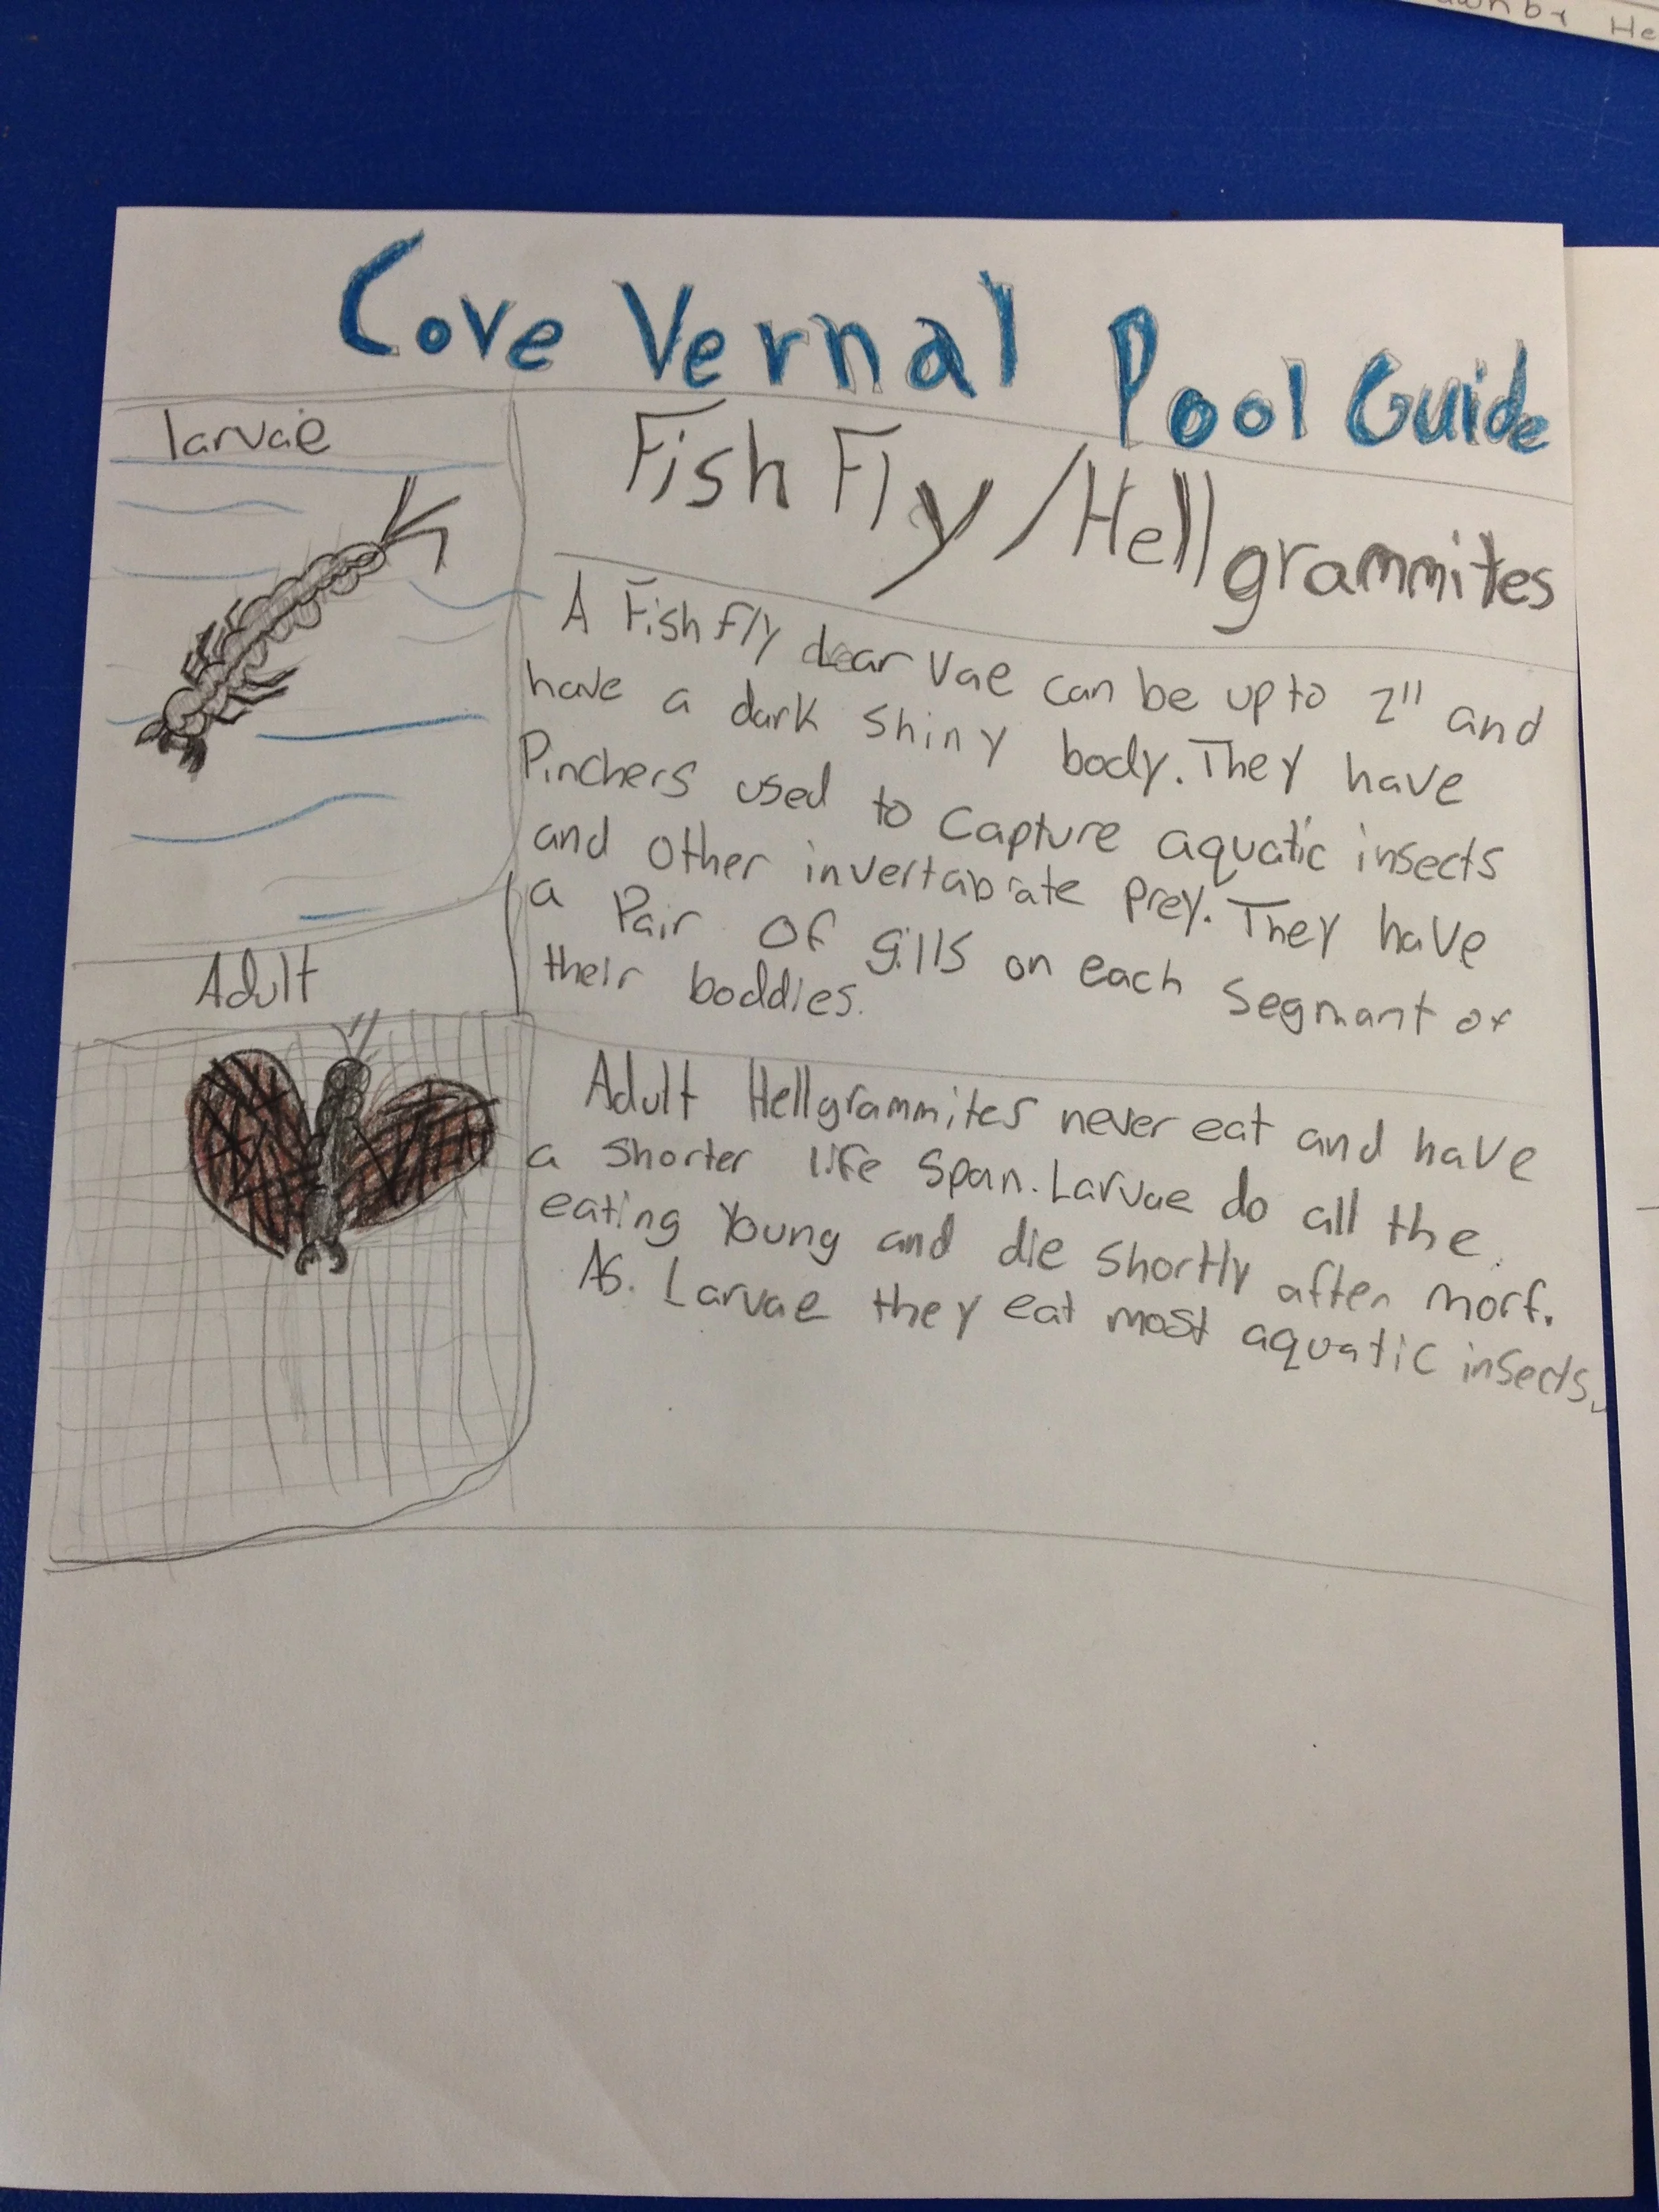 Cove Vernal Pool Guide
larvae
Fish Fly/Hellgrammites
A Fish fly larvae can be up to 2" and
have a dark shiny body. They have
Pinchers used to capture aquatic insects
and other invertabrate prey. They have
a Pair of gills on each segmant of
their boddies.
Adult
Adult Hellgrammites never eat and have
a shorter life span. Larvae do all the
eating young and die shortly after morf.
As. Larvae they eat most aquatic insects.